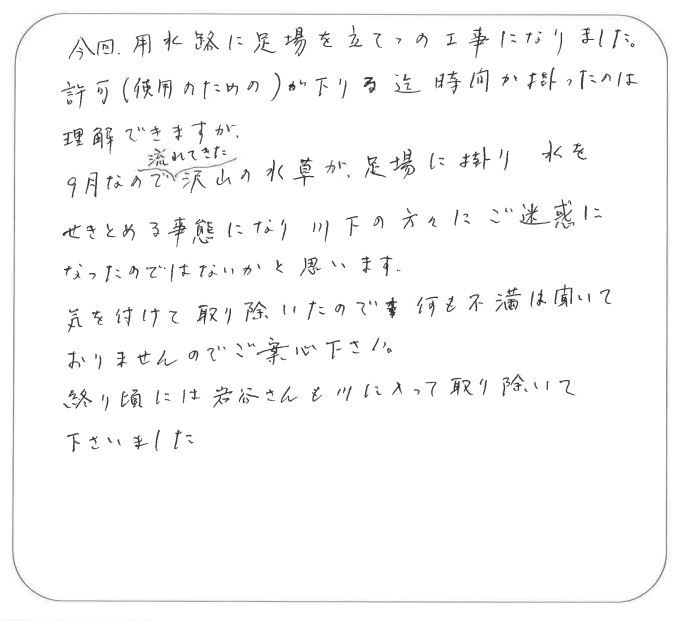 今回、用水路に足場を立てつの工事になりました。
許可(使用のための)が下りる迄 時間が掛ったのは
理解できますが、
9月なので流れてきた沢山の水草が、足場に掛り 水を
せきとめる事態になり 川下の方々にご迷惑に
なったのではないかと思います。
気を付けて取り除いたので 何も不満は聞いて
おりませんのでご安心下さい。
終り頃には岩谷さんも川に入って取り除いて
下さいました